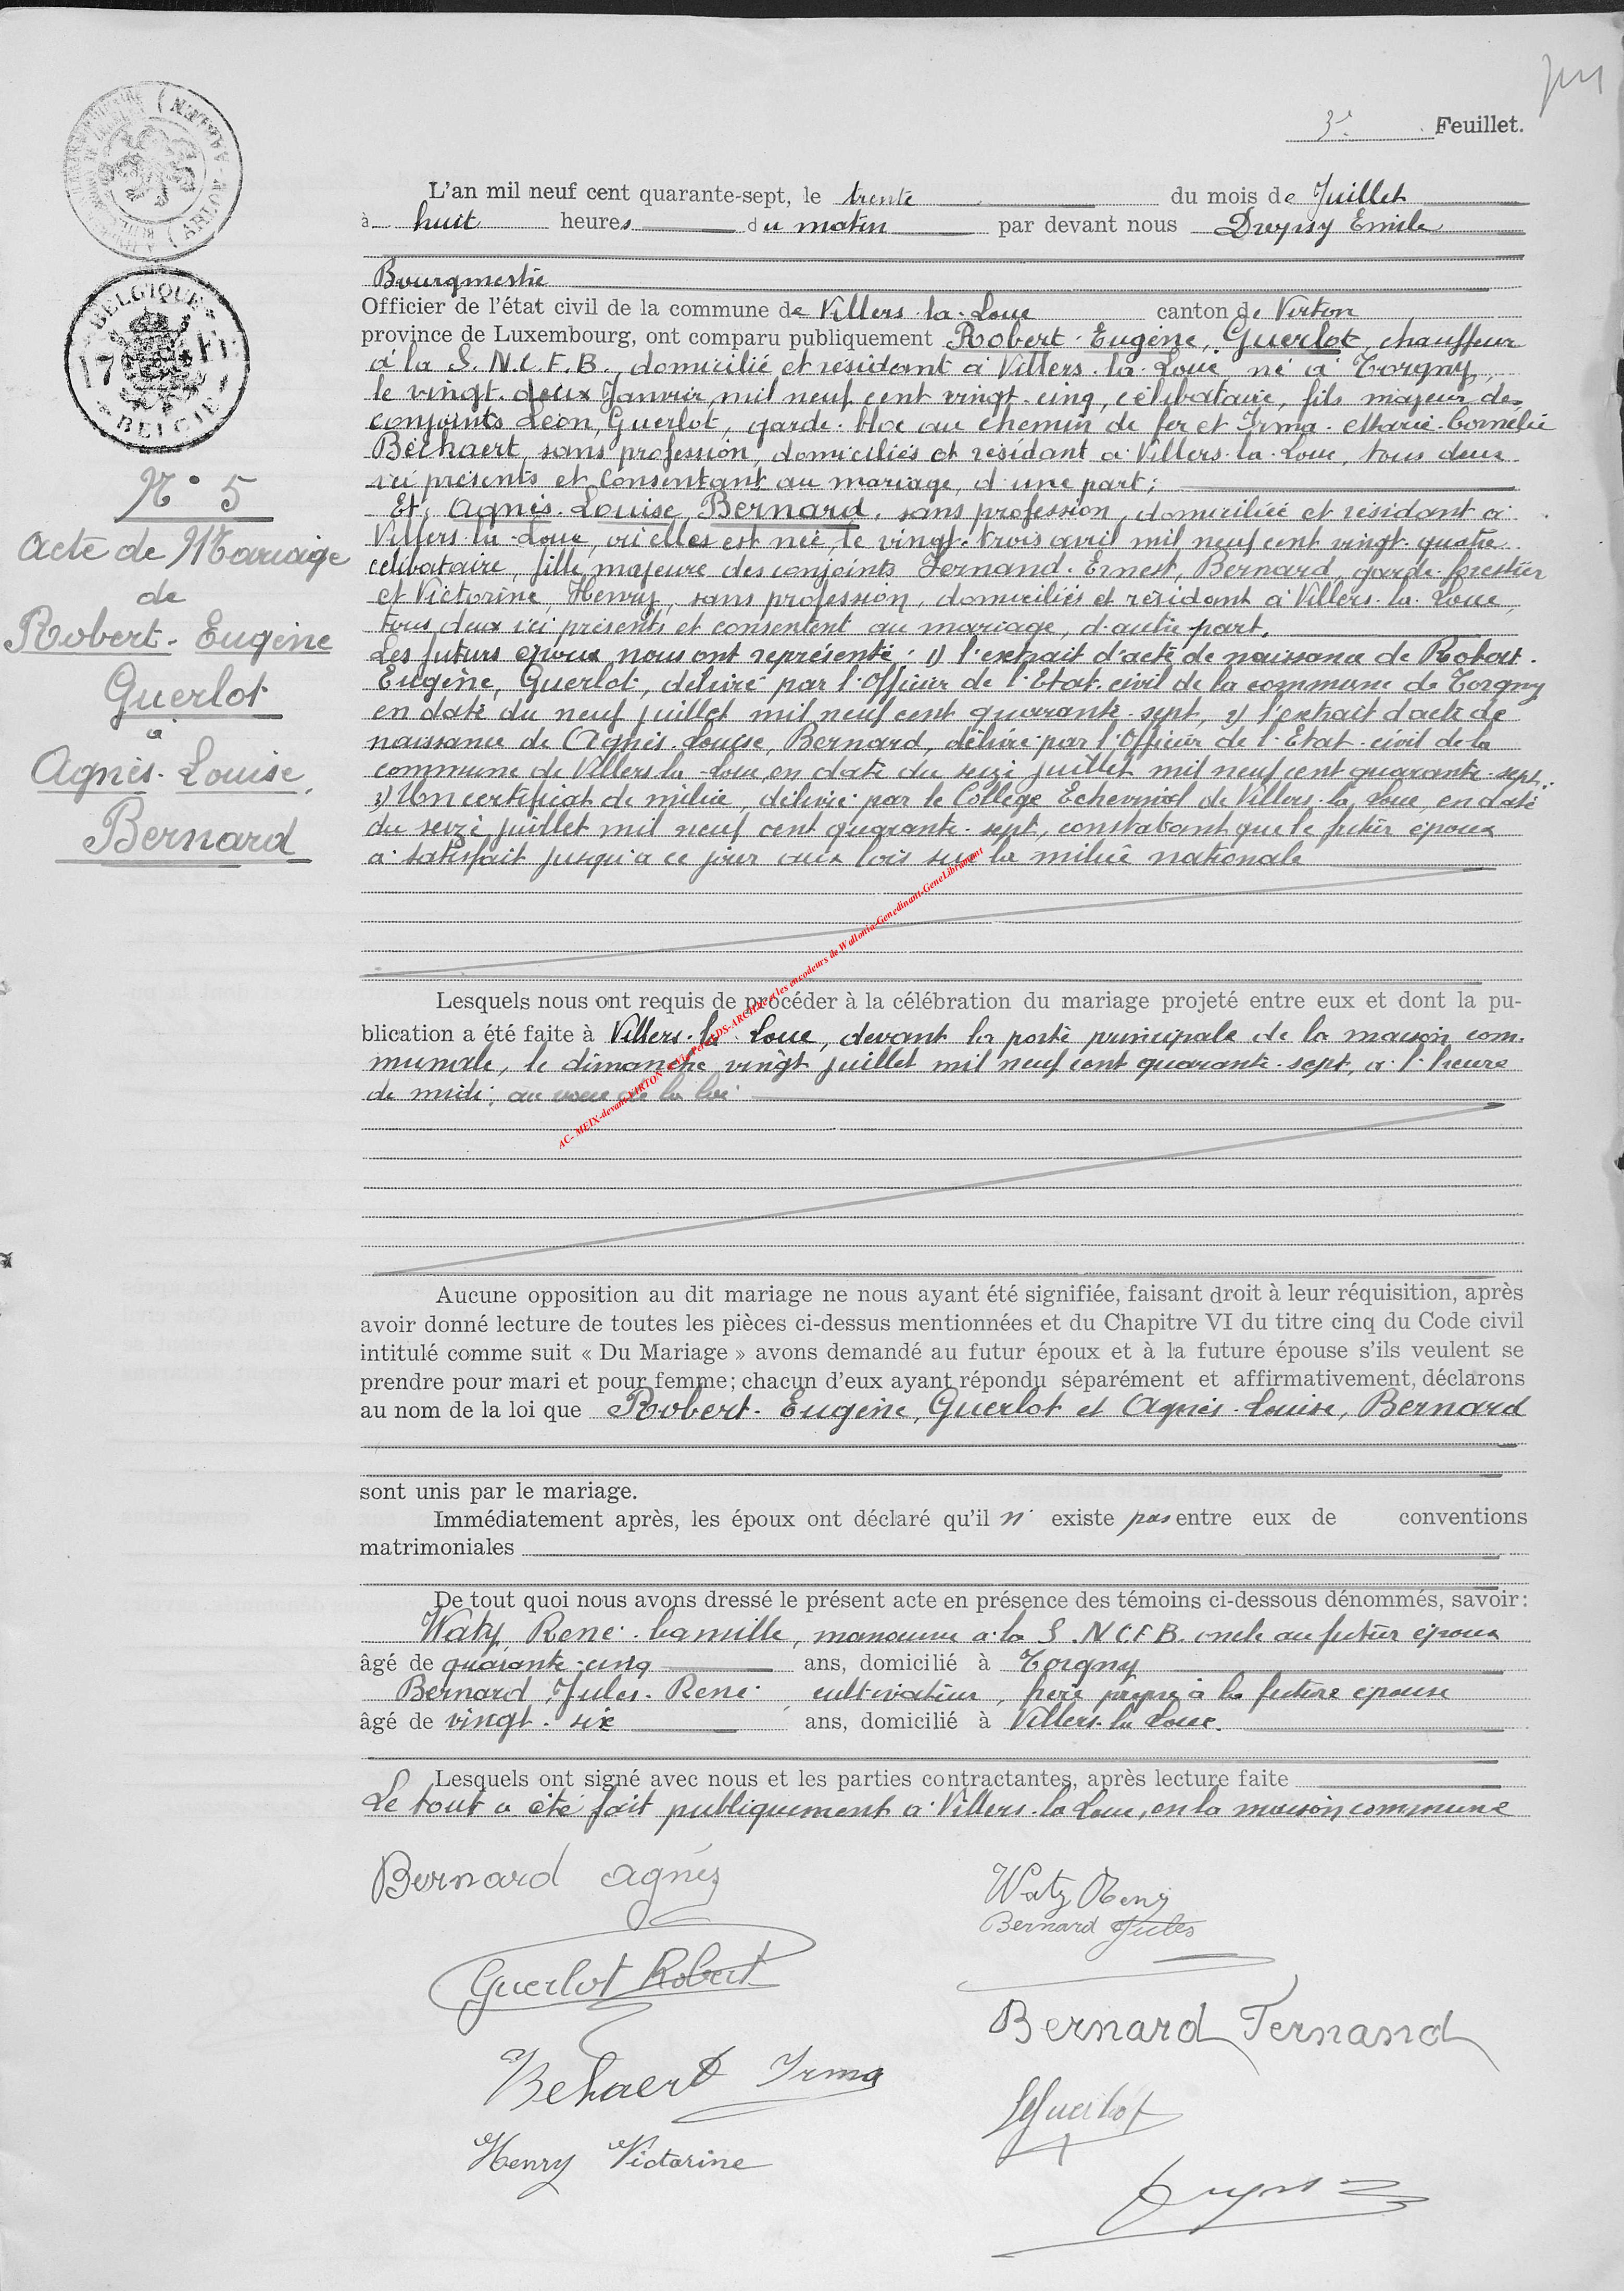 3e Feuillet.
L'an mil neuf cent quarante-sept, le trente du mois de Juillet
à huit heures du matin par devant nous Emile
Bourgmestre
Officier de l'état civil de la commune de Villers-la-Loue canton de Virton
province de Luxembourg, ont comparu publiquement Robert-Eugène, Guerlot, chauffeur
à la S.N.C.F.B., domicilié et résidant à Villers-la-Loue né à Torgny,
le vingt-deux Janvier mil neuf cent vingt-cinq, célibataire, fils majeur des
conjoints Léon, Guerlot, garde-bloc au chemin de fer et Irma-Marie-Cornélie
Béchaert, sans profession, domiciliés et résidant à Villers-la-Loue, tous deux
ici présents et consentant au mariage, d'une part;
Et, Agnès-Louise, Bernard, sans profession, domiciliée et résidant à
Villers-la-Loue, où elles est née, le vingt-trois avril mil neuf cent vingt-quatre
célibataire, fille majeure des conjoints Fernand-Ernest, Bernard, garde-forestier
et Victorine, Henry, sans profession, domiciliés et résidant à Villers-la-Loue,
tous deux ici présents et consentent au mariage, d'autre part.
Les futurs époux nous ont représenté: 1) l'extrait d'acte de naissance de Robert-
Eugène, Guerlot, délivré par l'Officier de l'Etat-civil de la commune de Torgny
en date du neuf juillet mil neuf cent quarante-sept, 2) l'extrait d'acte de
naissance de Agnès-Louise, Bernard, délivré par l'Officier de l'Etat-civil de la
commune de Villers-la-Loue, en date du seize juillet mil neuf cent quarante-sept.
3) Un certificat de milice, délivré par le Collège Echevinal de Villers-la-Loue, en date
du seize juillet mil neuf cent quarante-sept, constatant que le futur époux
a satisfait jusqu'à ce jour aux lois sur la milice nationale
Lesquels nous ont requis de procéder à la célébration du mariage projeté entre eux et dont la pu-
blication a été faite à Villers-la-Loue, devant la porte principale de la maison com-
munale, le dimanche vingt juillet mil neuf cent quarante-sept, à l'heure
de midi; au voeu de la loi
Aucune opposition au dit mariage ne nous ayant été signifiée, faisant droit à leur réquisition, après
avoir donné lecture de toutes les pièces ci-dessus mentionnées et du Chapitre VI du titre cinq du Code civil
intitulé comme suit « Du Mariage » avons demandé au futur époux et à la future épouse s'ils veulent se
prendre pour mari et pour femme; chacun d'eux ayant répondu séparément et affirmativement, déclarons
au nom de la loi que Robert-Eugène, Guerlot et Agnès-Louise, Bernard
sont unis par le mariage.
Immédiatement après, les époux ont déclaré qu'il n' existe pas entre eux de conventions
matrimoniales
De tout quoi nous avons dressé le présent acte en présence des témoins ci-dessous dénommés, savoir:
Waty, René-Camille, manoeuvre à la S.N.C.F.B. oncle au futur époux
âgé de quarante-cinq ans, domicilié à Torgny
Bernard, Jules-René, cultivateur, frère propre à la future épouse
âgé de vingt-six ans, domicilié à Villers-la-Loue.
Lesquels ont signé avec nous et les parties contractantes, après lecture faite
Le tout a été fait publiquement à Villers-la-Loue, en la maison commune
Bernard Agnès
Guerlot Robert
Behaert Irma
Henry Victorine
Waty René
Bernard Jules
Bernard Fernand
LGuerlot
N° 5
Acte de Mariage
de
Robert-Eugène
Guerlot
à
Agnès-Louise,
Bernard
BELGIQUE
BELGIË